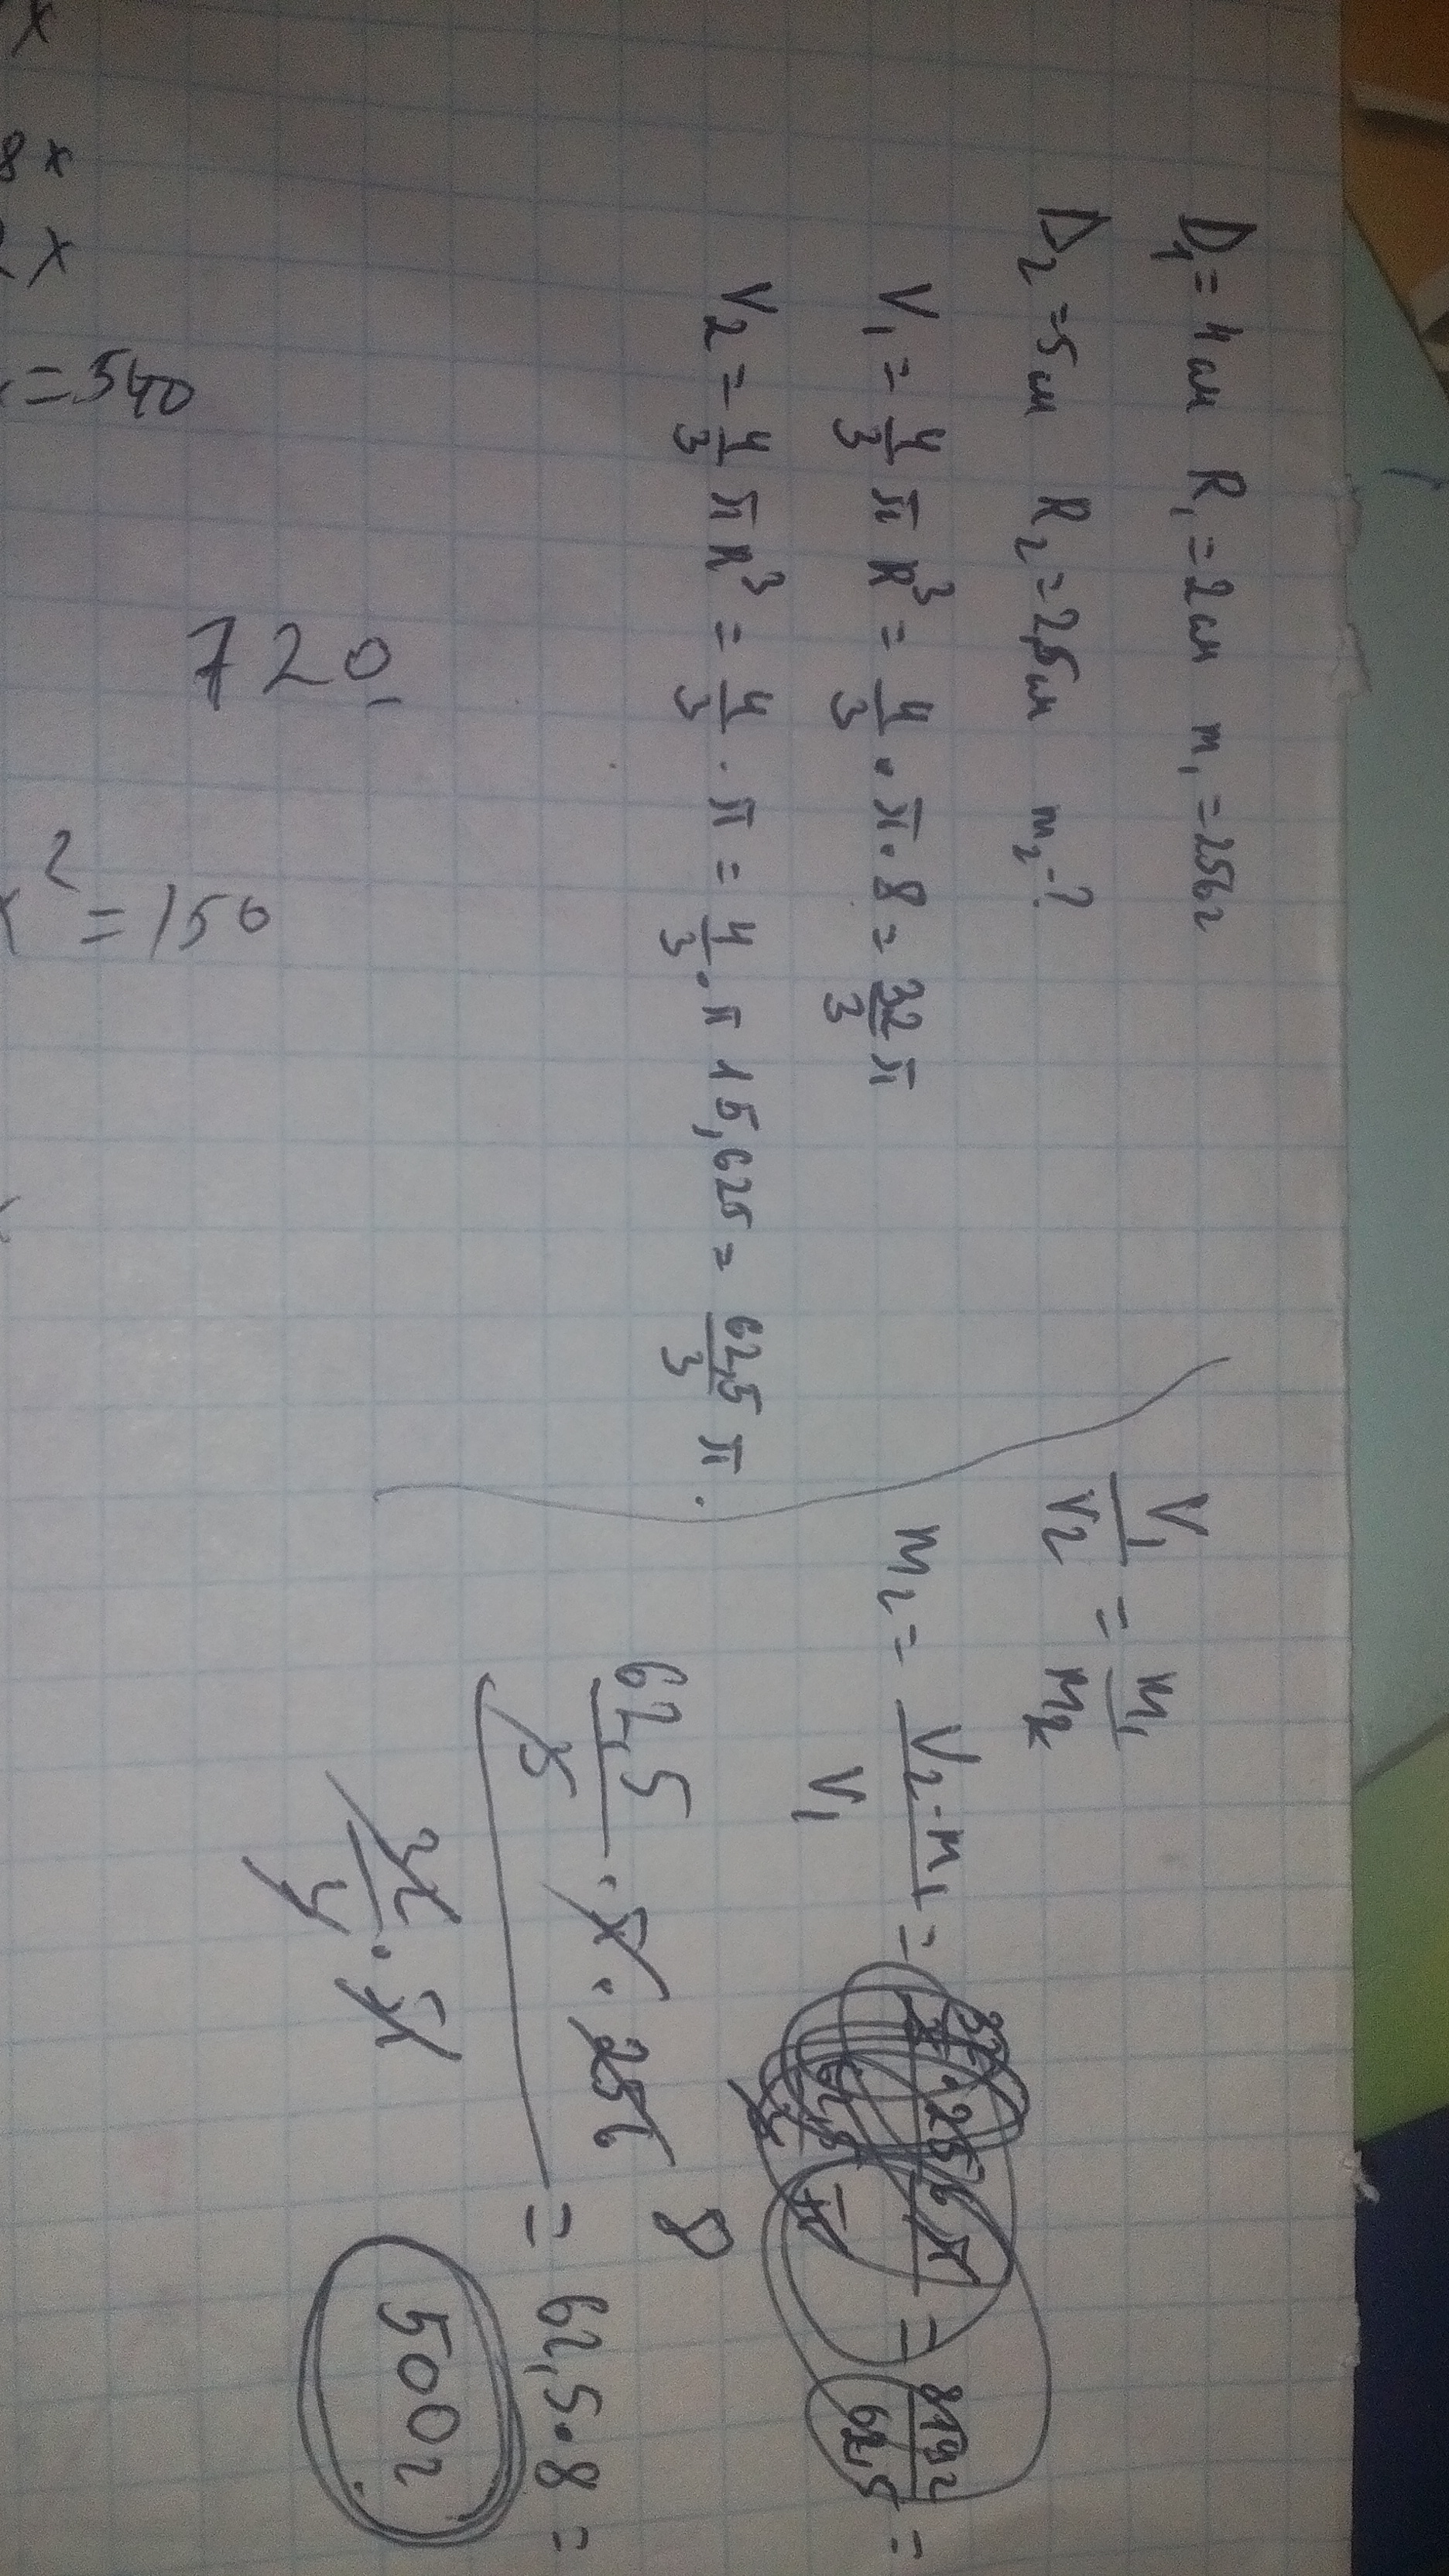 D₁ = 4 см R₁ = 2 см m₁ = 256 г
D₂ = 5 см R₂ = 2,5 см m₂ - ?
V₁ = 4/3 π R³ = 4/3 · π · 8 = 32/3 π
V₂ = 4/3 π R³ = 4/3 · π = 4/3 · π 15,625 = 62,5/3 π.
V₁/V₂ = m₁/m₂
m₂ = V₂ · m₁ / V₁ =
= 8192/62,5 =
62,5/3 · π · 256 8
32/3 · π
= 62,5 · 8 =
500 г
x
8x
2x
= 540
720
x² = 150